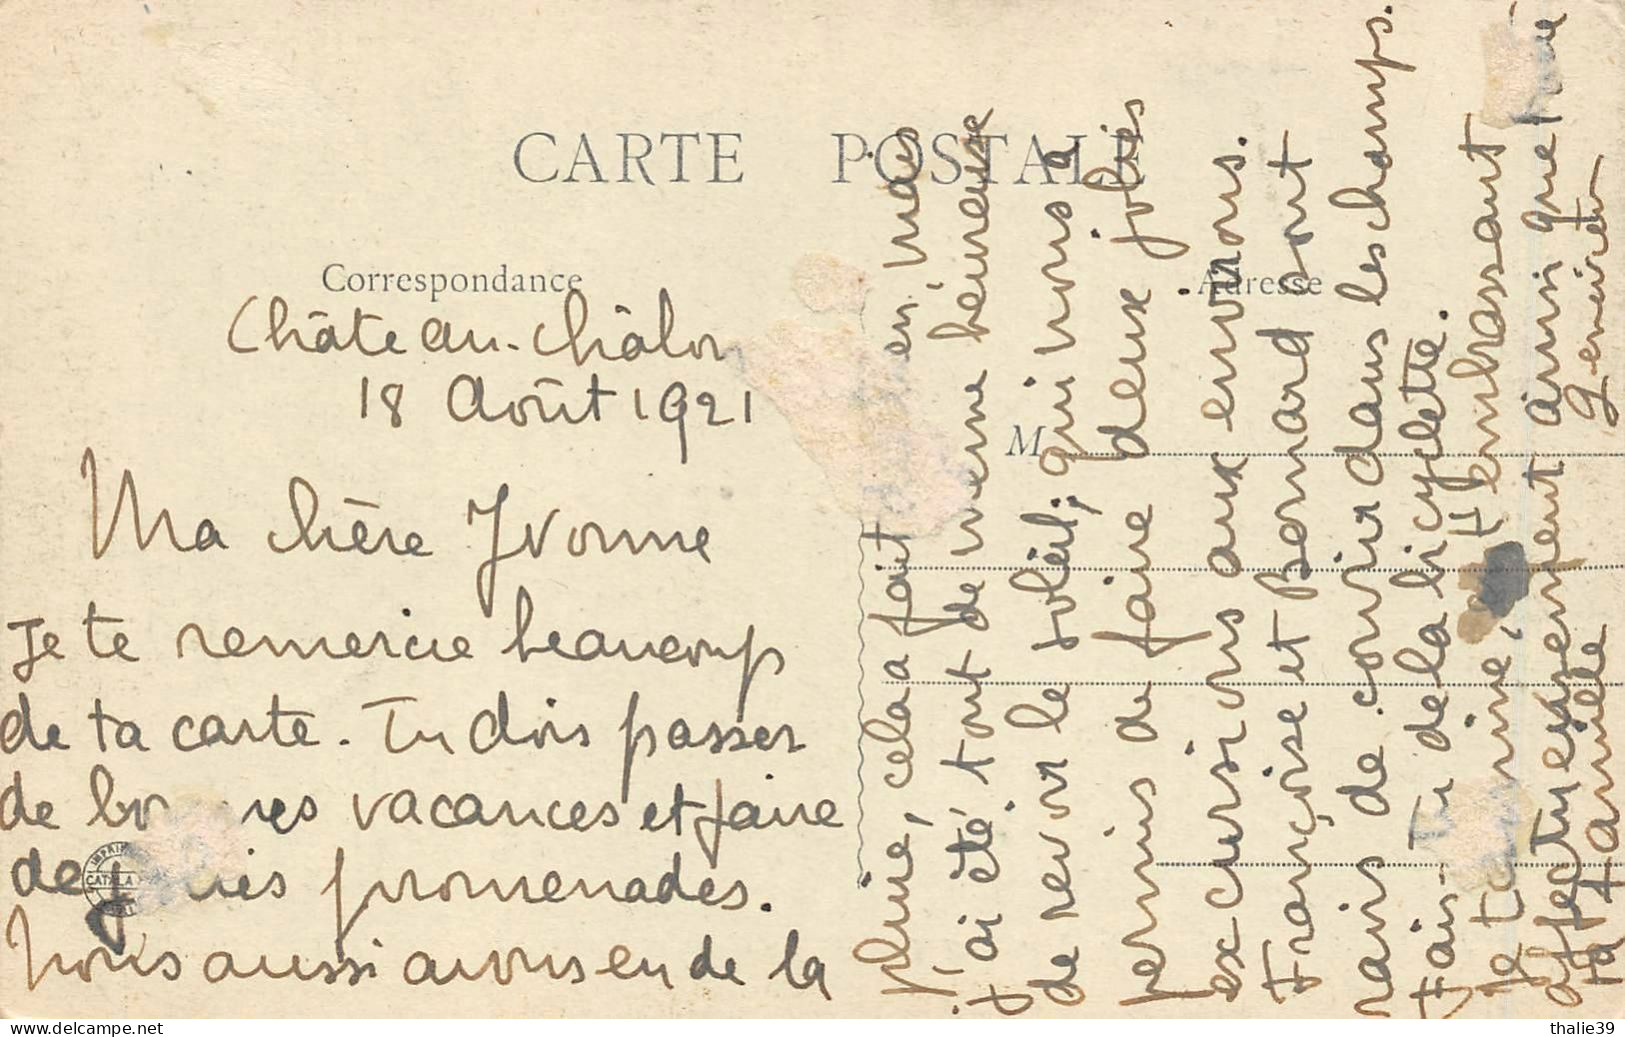 CARTE POSTALE
Correspondance
Adresse
M
Château-Châlon
18 Août 1921
Ma chère Yvonne
Je te remercie beaucoup
de ta carte. Tu dois passer
de bonnes vacances et faire
de jolies promenades.
Nous aussi avons eu de la
pluie, cela a fait en mais
j'ai été tout de même heureuse
de revoir le soleil; qui nous a
permis de faire deux jolies
excursions aux environs.
Françoise et Bernard sont
ravis de courir dans les champs.
Fais-Tu de la bicyclette.
Je termine, t'embrassant
affectueusement ainsi que
ta famille
IMPRIM
CATALA
thalie39
www.delcampe.net